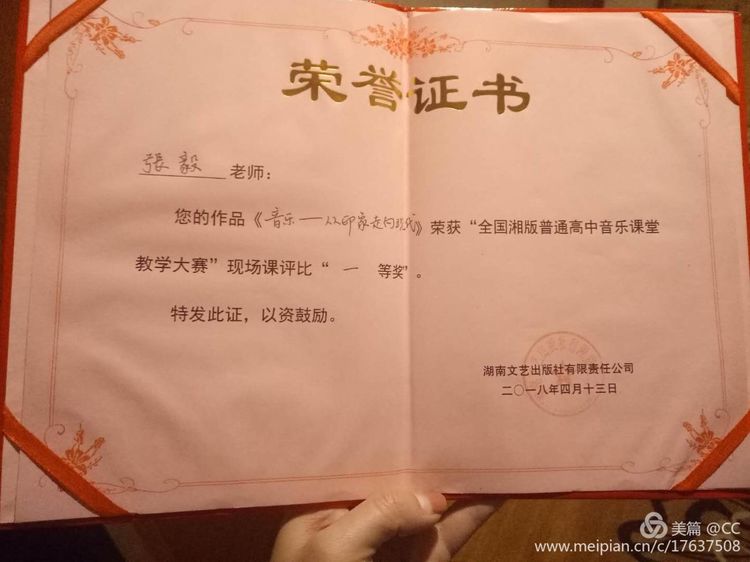 荣誉证书
張毅 老师：
您的作品《音乐——从印象走向现代》荣获“全国湘版普通高中音乐课堂
教学大赛”现场课评比“ 一 等奖”。
特发此证，以资鼓励。
湖南文艺出版社有限责任公司
二〇一八年四月十三日
美篇 @CC
www.meipian.cn/c/17637508